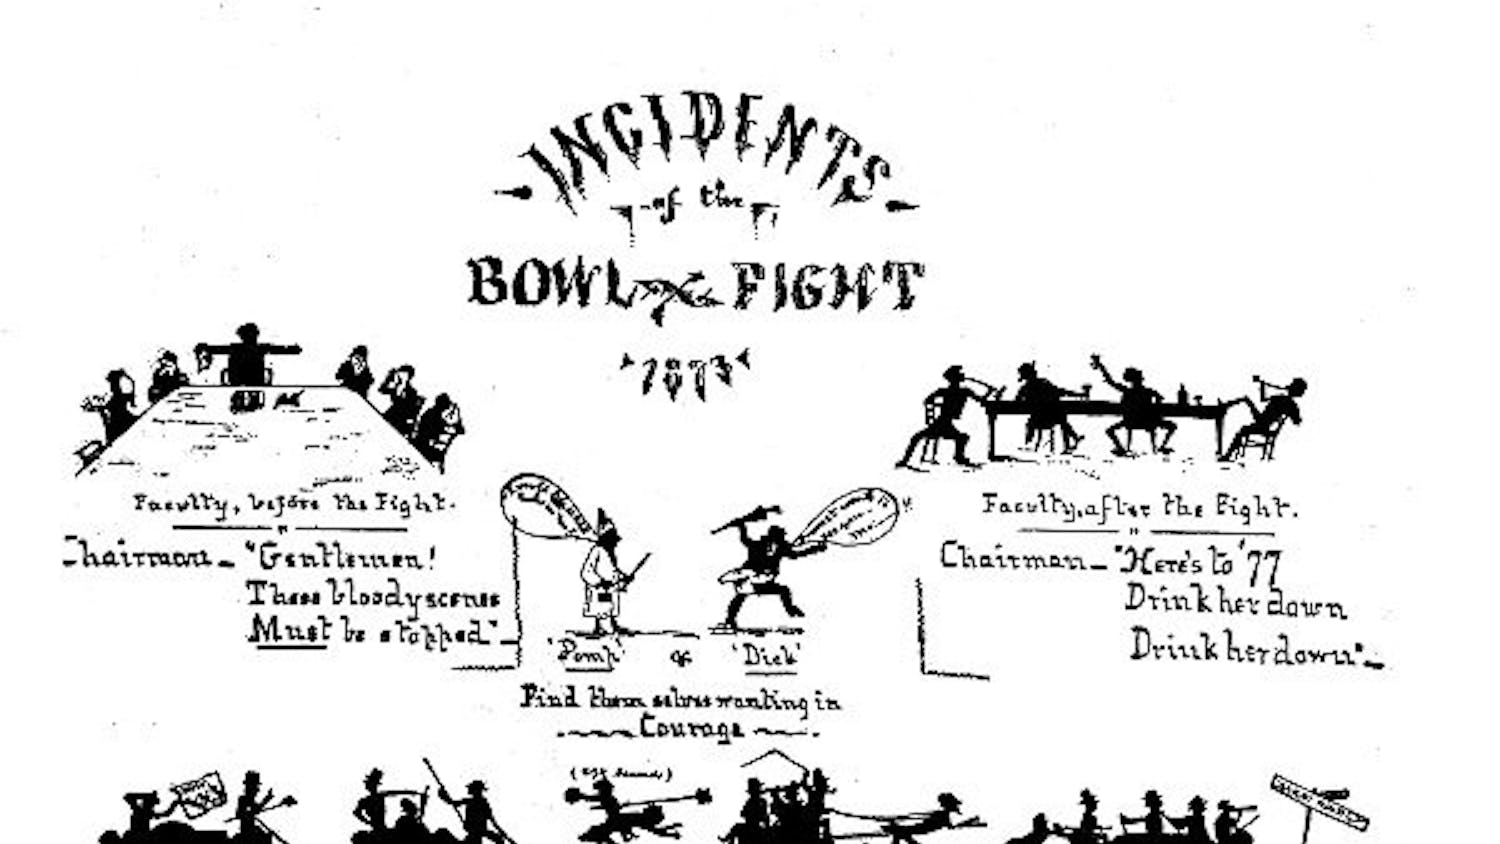 INCIDENTS
of the
BOWL FIGHT
1873
Faculty, before the Fight.
Chairman - "Gentlemen!
These bloody scenes
Must be stopped"
Faculty, after the Fight.
Chairman - "Here's to '77
Drink her down
Drink her down"
'Pomp' & 'Dick'
Find themselves wanting in
Courage